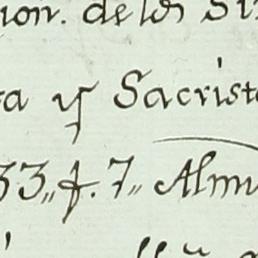 ion. de los Si
a y Sacrist
33,, f. 7,, Almu